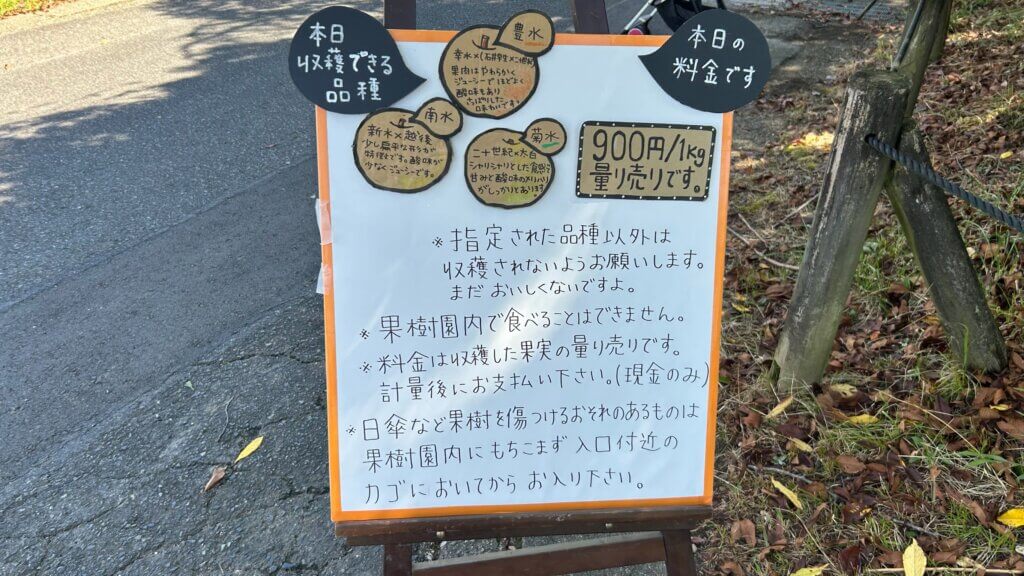 本日
収穫できる
品種
豊水
幸水×(石井早生×二十世紀)
果肉はやわらかく
ジューシーでほどよく
酸味もあり
さっぱりした
味わいです!
南水
新水×越後
少し扁平な形が
特徴です。酸味が
少なくジューシーです。
菊水
二十世紀×太白
シャリシャリとした食感で
甘みと酸味のメリハリ
がしっかりとあります
本日の
料金です
900円/1kg
量り売りです。
※指定された品種以外は
収穫されないようお願いします。
まだおいしくないですよ。
※果樹園内で食べることはできません。
※料金は収穫した果実の量り売りです。
計量後にお支払い下さい。(現金のみ)
※日傘など果樹を傷つけるおそれのあるものは
果樹園内にもちこまず入口付近の
カゴにおいてからお入り下さい。